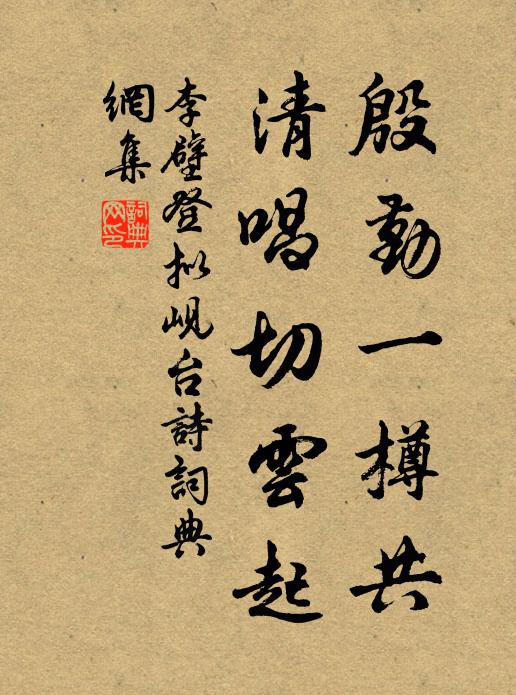 殷勤一樽共
清唱切雲起
李壁登拟峴台詩詞典
網集
詞典
网印